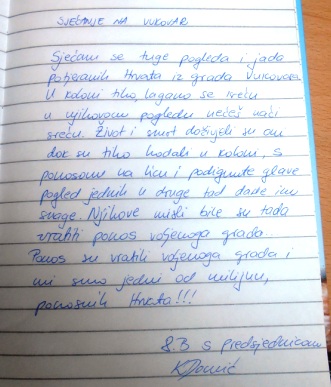 SJEĆANJE NA VUKOVAR
Sjećam se tuge pogleda i jada
potjeranih Hrvata iz grada Vukovara.
U koloni tiho, lagano se kreću
u njihovom pogledu nećeš naći
sreću. Život i smrt doživjeli su oni
dok su tiho hodali u koloni, s
ponosom na licu i podignute glave
pogled jednih u druge tad dade im
snage. Njihove misli bile su tada
vratiti ponos voljenoga grada...
Ponos su vratili voljenoga grada i
mi smo jedni od milijun,
ponosnih Hrvata!!!
8.B s predsjednicom